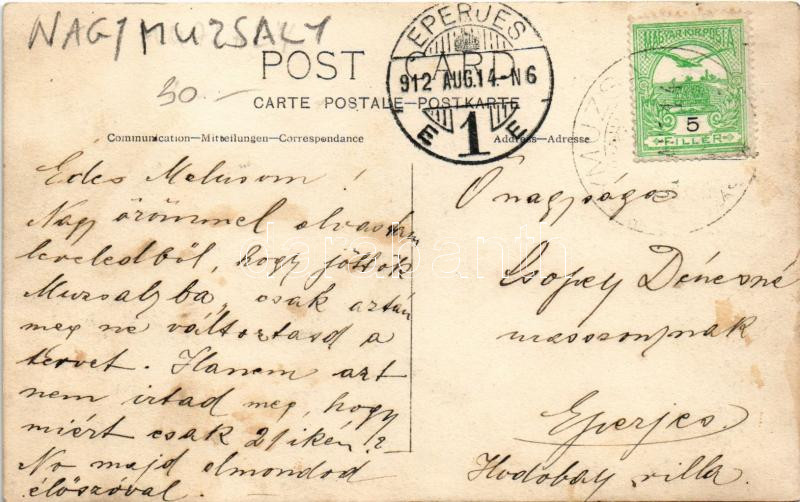 NAGYMUZSALY
30.-
POST CARD
CARTE POSTALE–POSTKARTE
Communication—Mitteilungen—Correspondance
Address—Adresse
EPERJES
912 AUG.14.-N6
E 1 E
MAGYAR KIR. POSTA
5
FILLÉR
Edes Melusom!
Nagy örömmel olvastam
leveledből, hogy jöttök
Muzsalyba, csak aztán
meg ne változtasd a
tervet. Hanem azt
nem irtad meg, hogy
miért csak 21ikén?
No majd elmondod
élőszóval.
Ő nagysága
Csopey Dénesné
asszonynak
Eperjes.
Hodobay villa.
darabanth